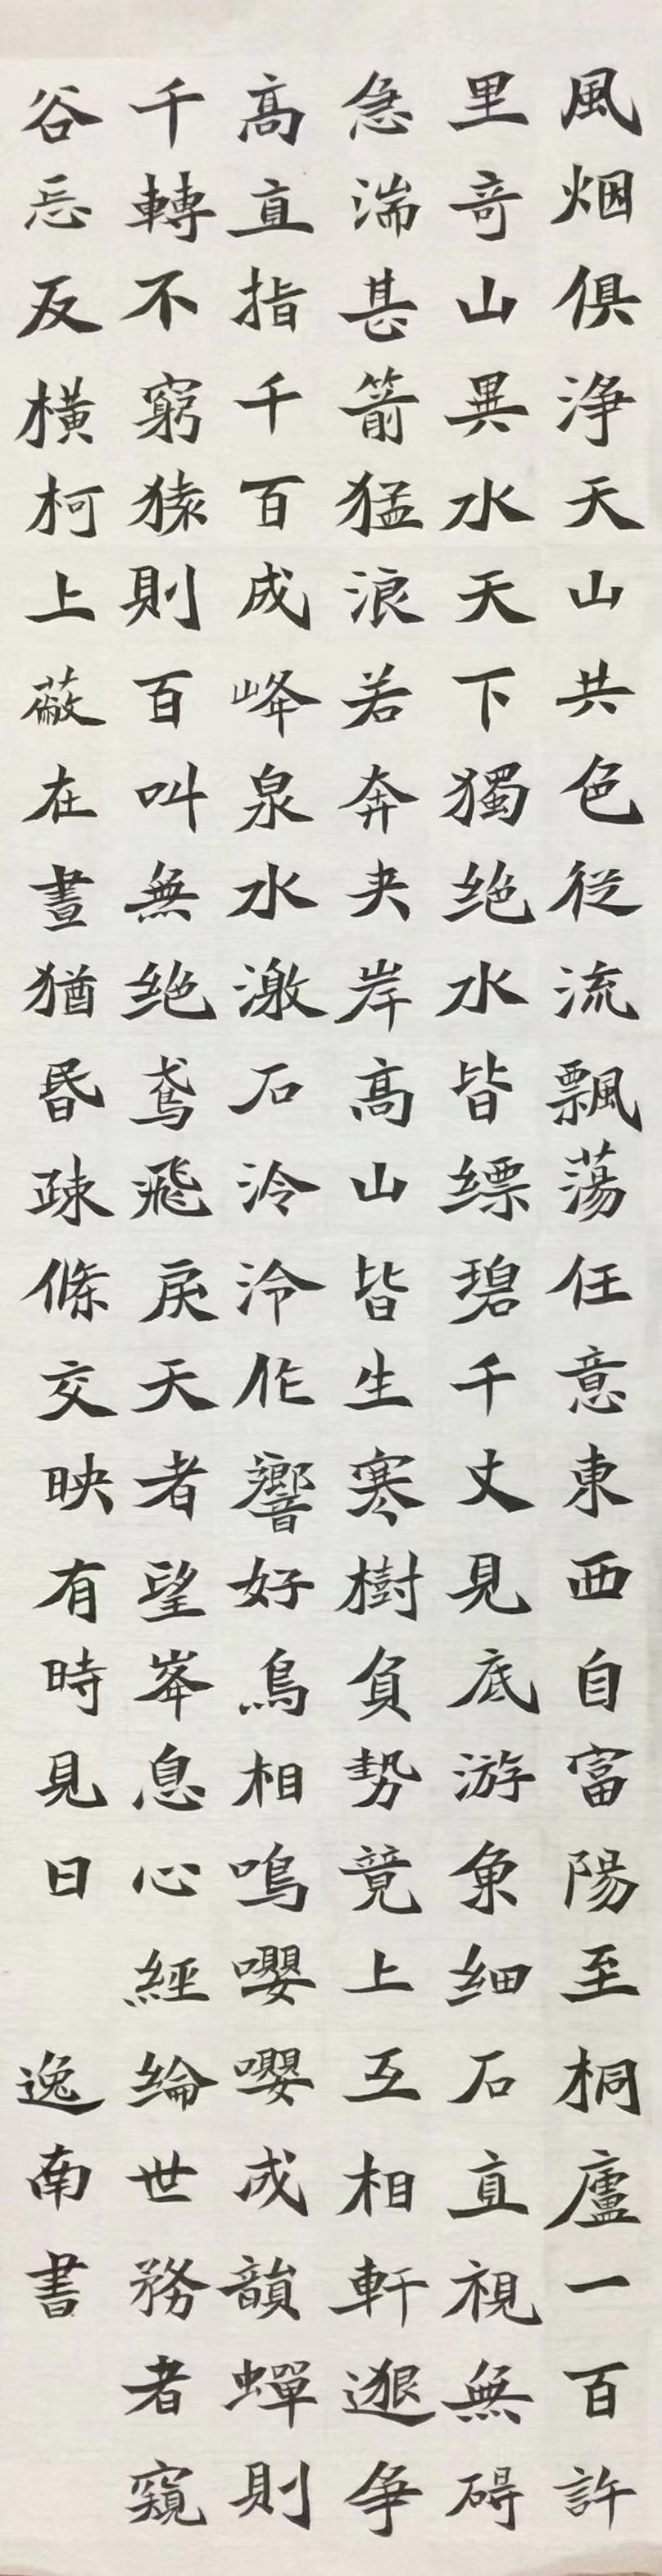 風烟俱淨天山共色從流飄蕩任意東西自富陽至桐廬一百許
里奇山異水天下獨绝水皆縹碧千丈見底游魚细石直視無碍
急湍甚箭猛浪若奔夹岸高山皆生寒樹負勢竞上互相軒邈争
高直指千百成峰泉水激石泠泠作響好鳥相鳴嚶嚶成韻蟬則
千轉不窮猿則百叫無绝鳶飛戾天者望峯息心經綸世務者窺
谷忘反橫柯上蔽在晝猶昏疎條交映有時見日
逸南書